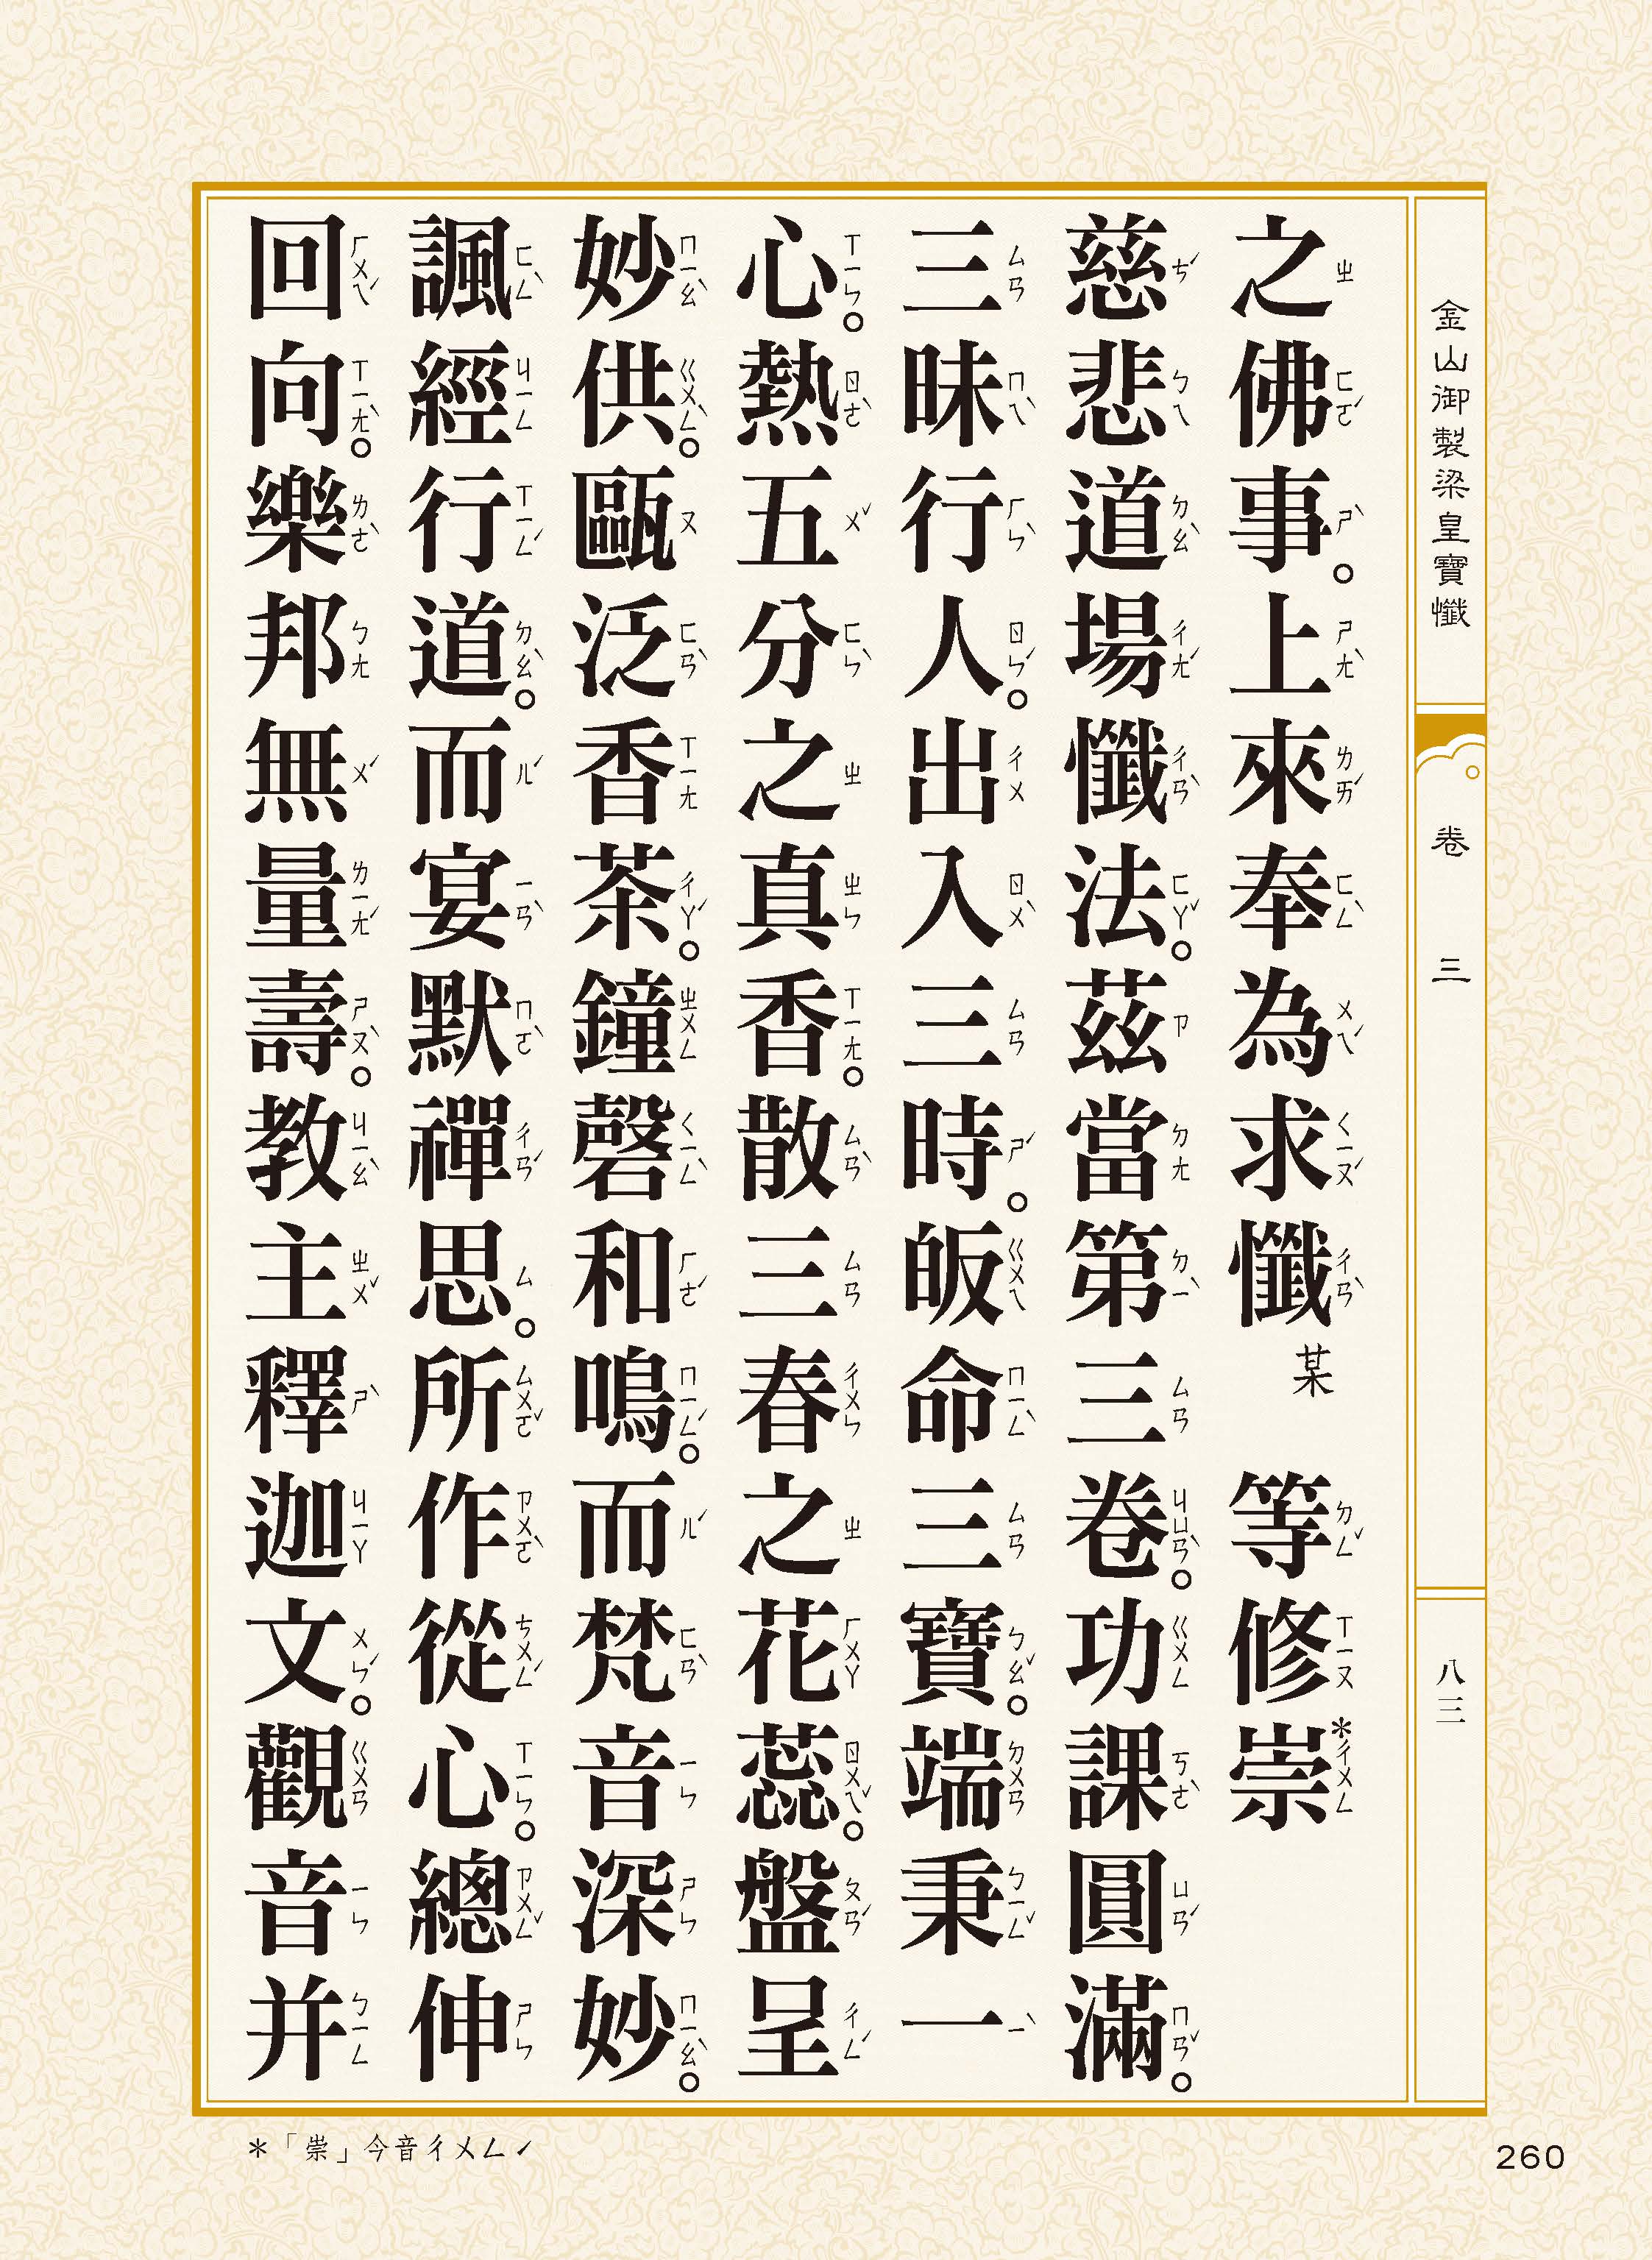 金山御製梁皇寶懺
卷三
八三
之佛事。上來奉為求懺某等修*崇
慈悲道場懺法。茲當第三卷。功課圓滿。
三昧行人。出入三時。皈命三寶。端秉一
心。熱五分之真香。散三春之花蕊。盤呈
妙供。甌泛香茶。鐘磬和鳴。而梵音深妙。
諷經行道。而宴默禪思。所作從心。總伸
回向。樂邦無量壽。教主釋迦文。觀音并
*「崇」今音ㄔㄨㄥˊ
260